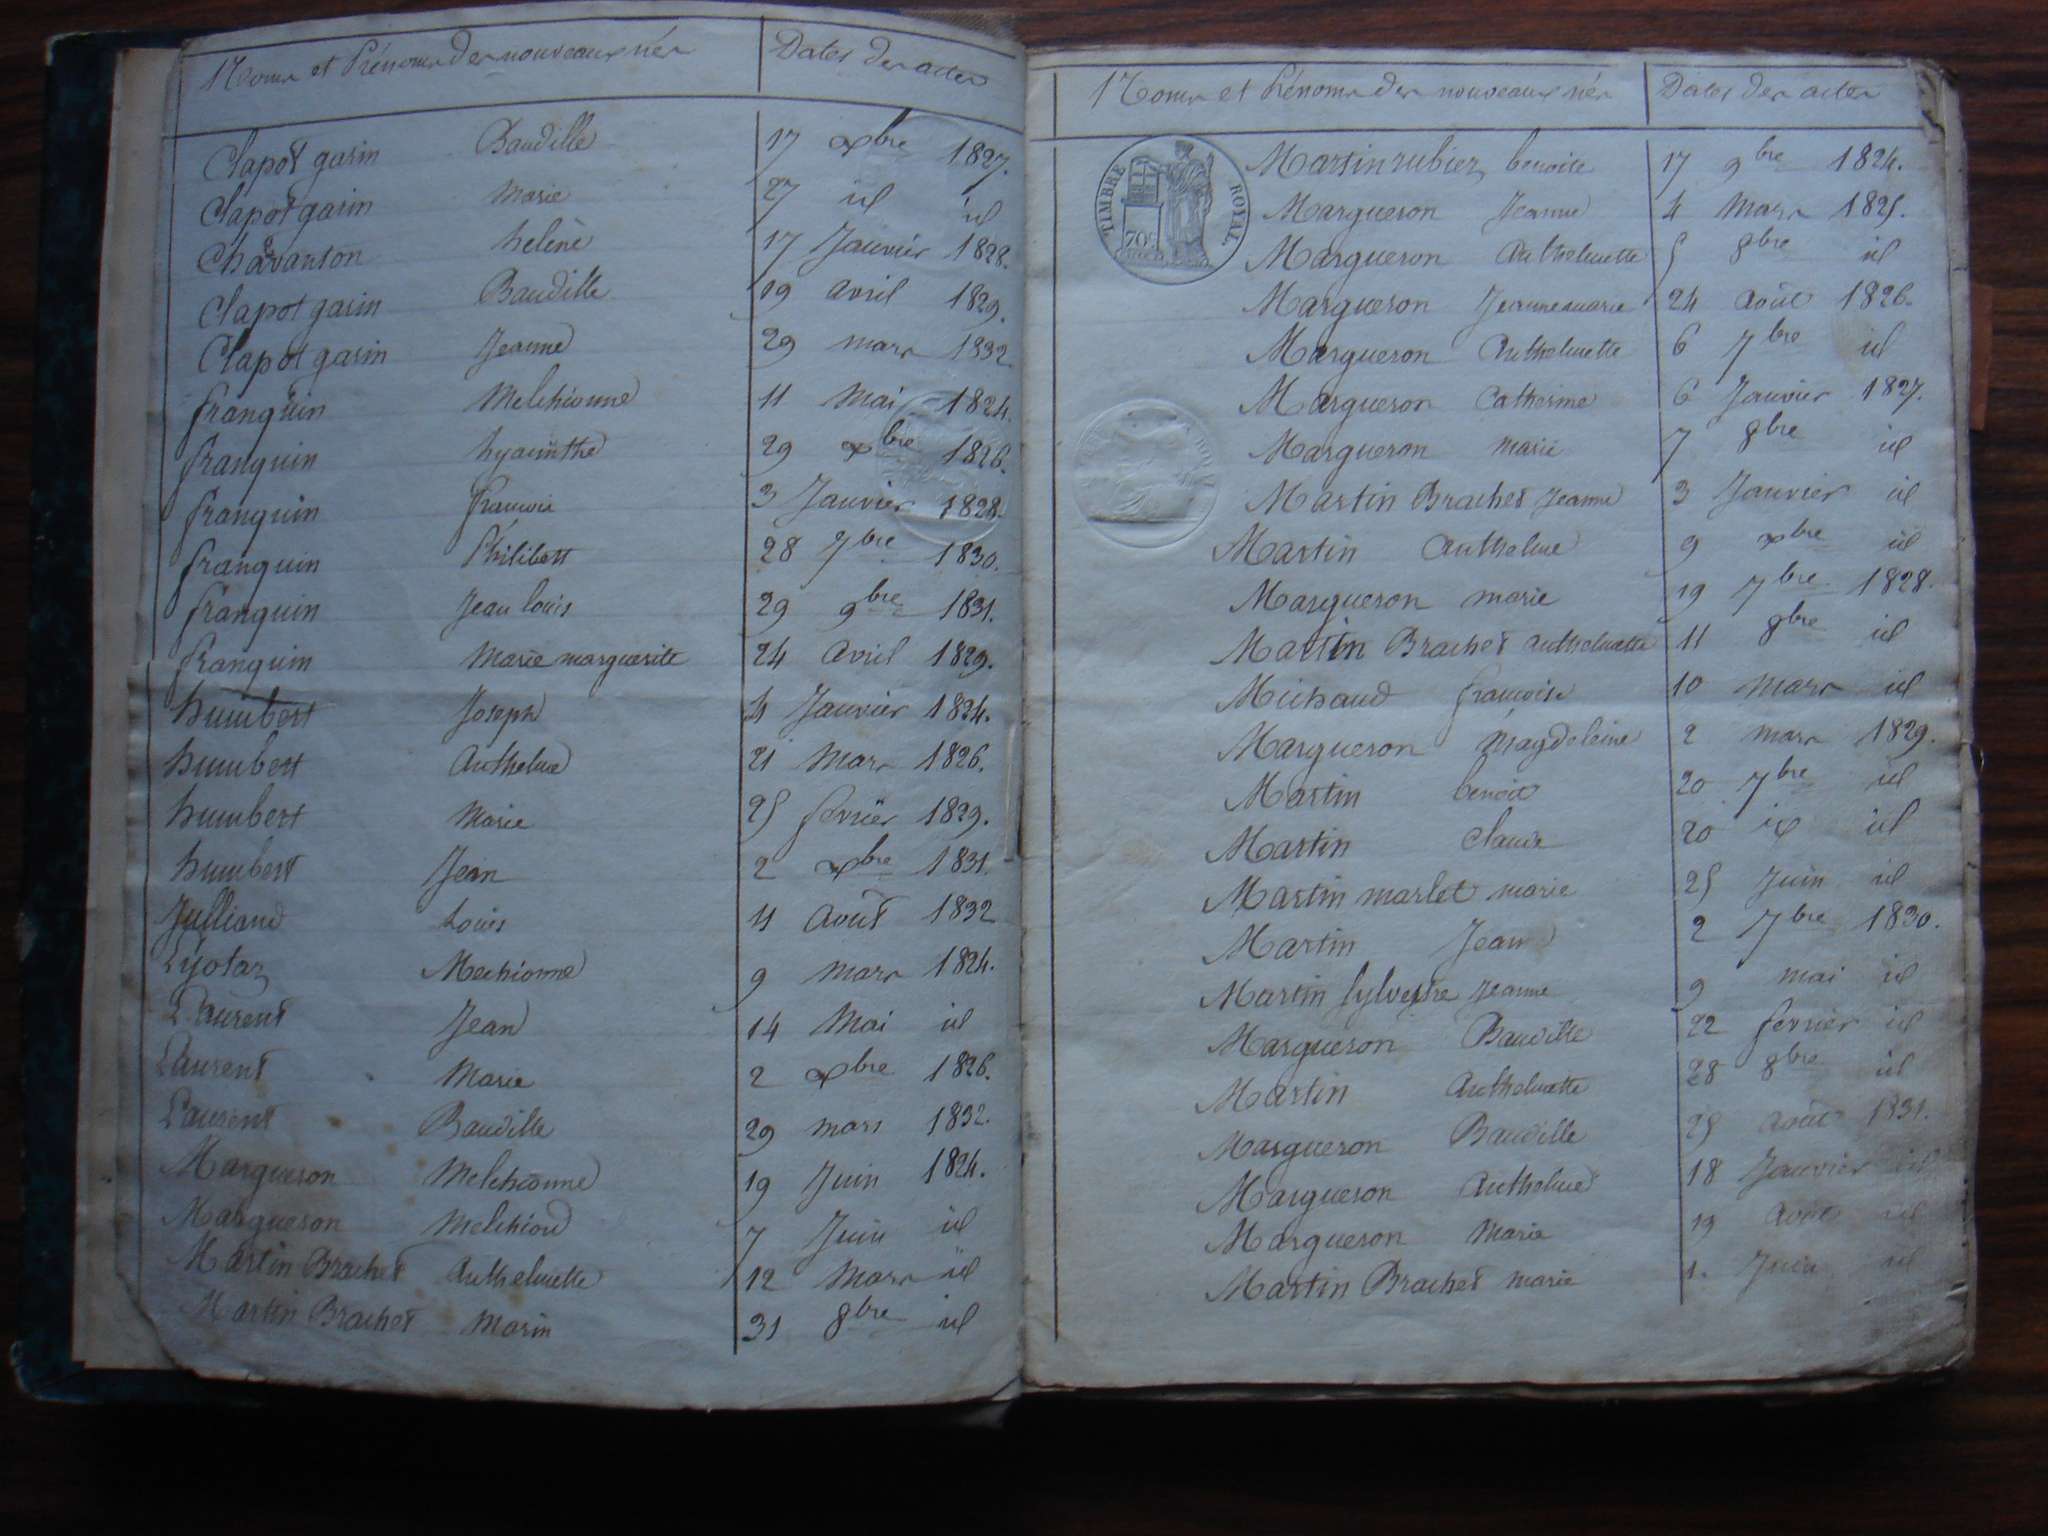 Noms et Prénoms des nouveaux nés Dates des actes
Clapot gasin Baudille 17 xbre 1827.
Clapot gasin Marie 27 id id
Chavanton helène 17 Janvier 1828.
Clapot gasin Baudille 19 avril 1829.
Clapot gasin Jeanne 29 mars 1832
franquin Melchionne 11 Mai 1824.
franquin hyacinthe 29 xbre 1826.
franquin francois 3 Janvier 1828.
franquin Philibert 28 7bre 1830.
franquin Jean louis 29 9bre 1831.
franquin Marie marguerite 24 avril 1829.
humbert Joseph 4 Janvier 1824.
humbert Anthelme 21 Mars 1826.
humbert Marie 25 fevrier 1829.
humbert Jean 2 xbre 1831.
Julliand Louis 11 Août 1832
Lyotaz Mechionne 9 Mars 1824.
Laurent Jean 14 Mai id
Laurent Marie 2 xbre 1826.
Laurent Baudille 29 mars 1832.
Margueron Melchionne 19 Juin 1824.
Margueron Melchiord 7 Juin id
Martin Brachet Anthelmette 12 Mars id
Martin Brachet Marin 31 8bre id
Noms et Prénoms des nouveaux nés Dates des actes
TIMBRE ROYAL
70c
Martin rubier benoite 17 9bre 1824.
Margueron Jeanne 4 Mars 1825.
Margueron Anthelmette 5 8bre id
Margueron Jeanne marie 24 Août 1826.
Margueron Anthelmette 6 7bre id
Margueron Catherine 6 Janvier 1827.
Margueron marie 7 8bre id
Martin Brachet Jeanne 3 Janvier id
Martin Anthelme 9 xbre id
Margueron marie 19 7bre 1828.
Martin Brachet anthelmette 11 8bre id
Michaud francoise 10 Mars id
Margueron Magdeleine 2 mars 1829.
Martin benoit 20 7bre id
Martin Claude 20 id id
Martin marlet marie 25 Juin id
Martin Jean 2 7bre 1830.
Martin Sylvestre Jeanne 9 mai id
Margueron Baudille 22 fevrier id
Martin Anthelmette 28 8bre id
Margueron Baudille 25 Août 1831.
Margueron Anthelme 18 Janvier id
Margueron Marie 19 Août id
Martin Brachet marie 1. Juin id